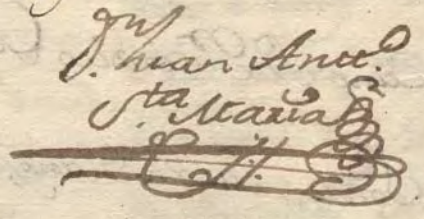 Juan Antto.
Sta. Maria